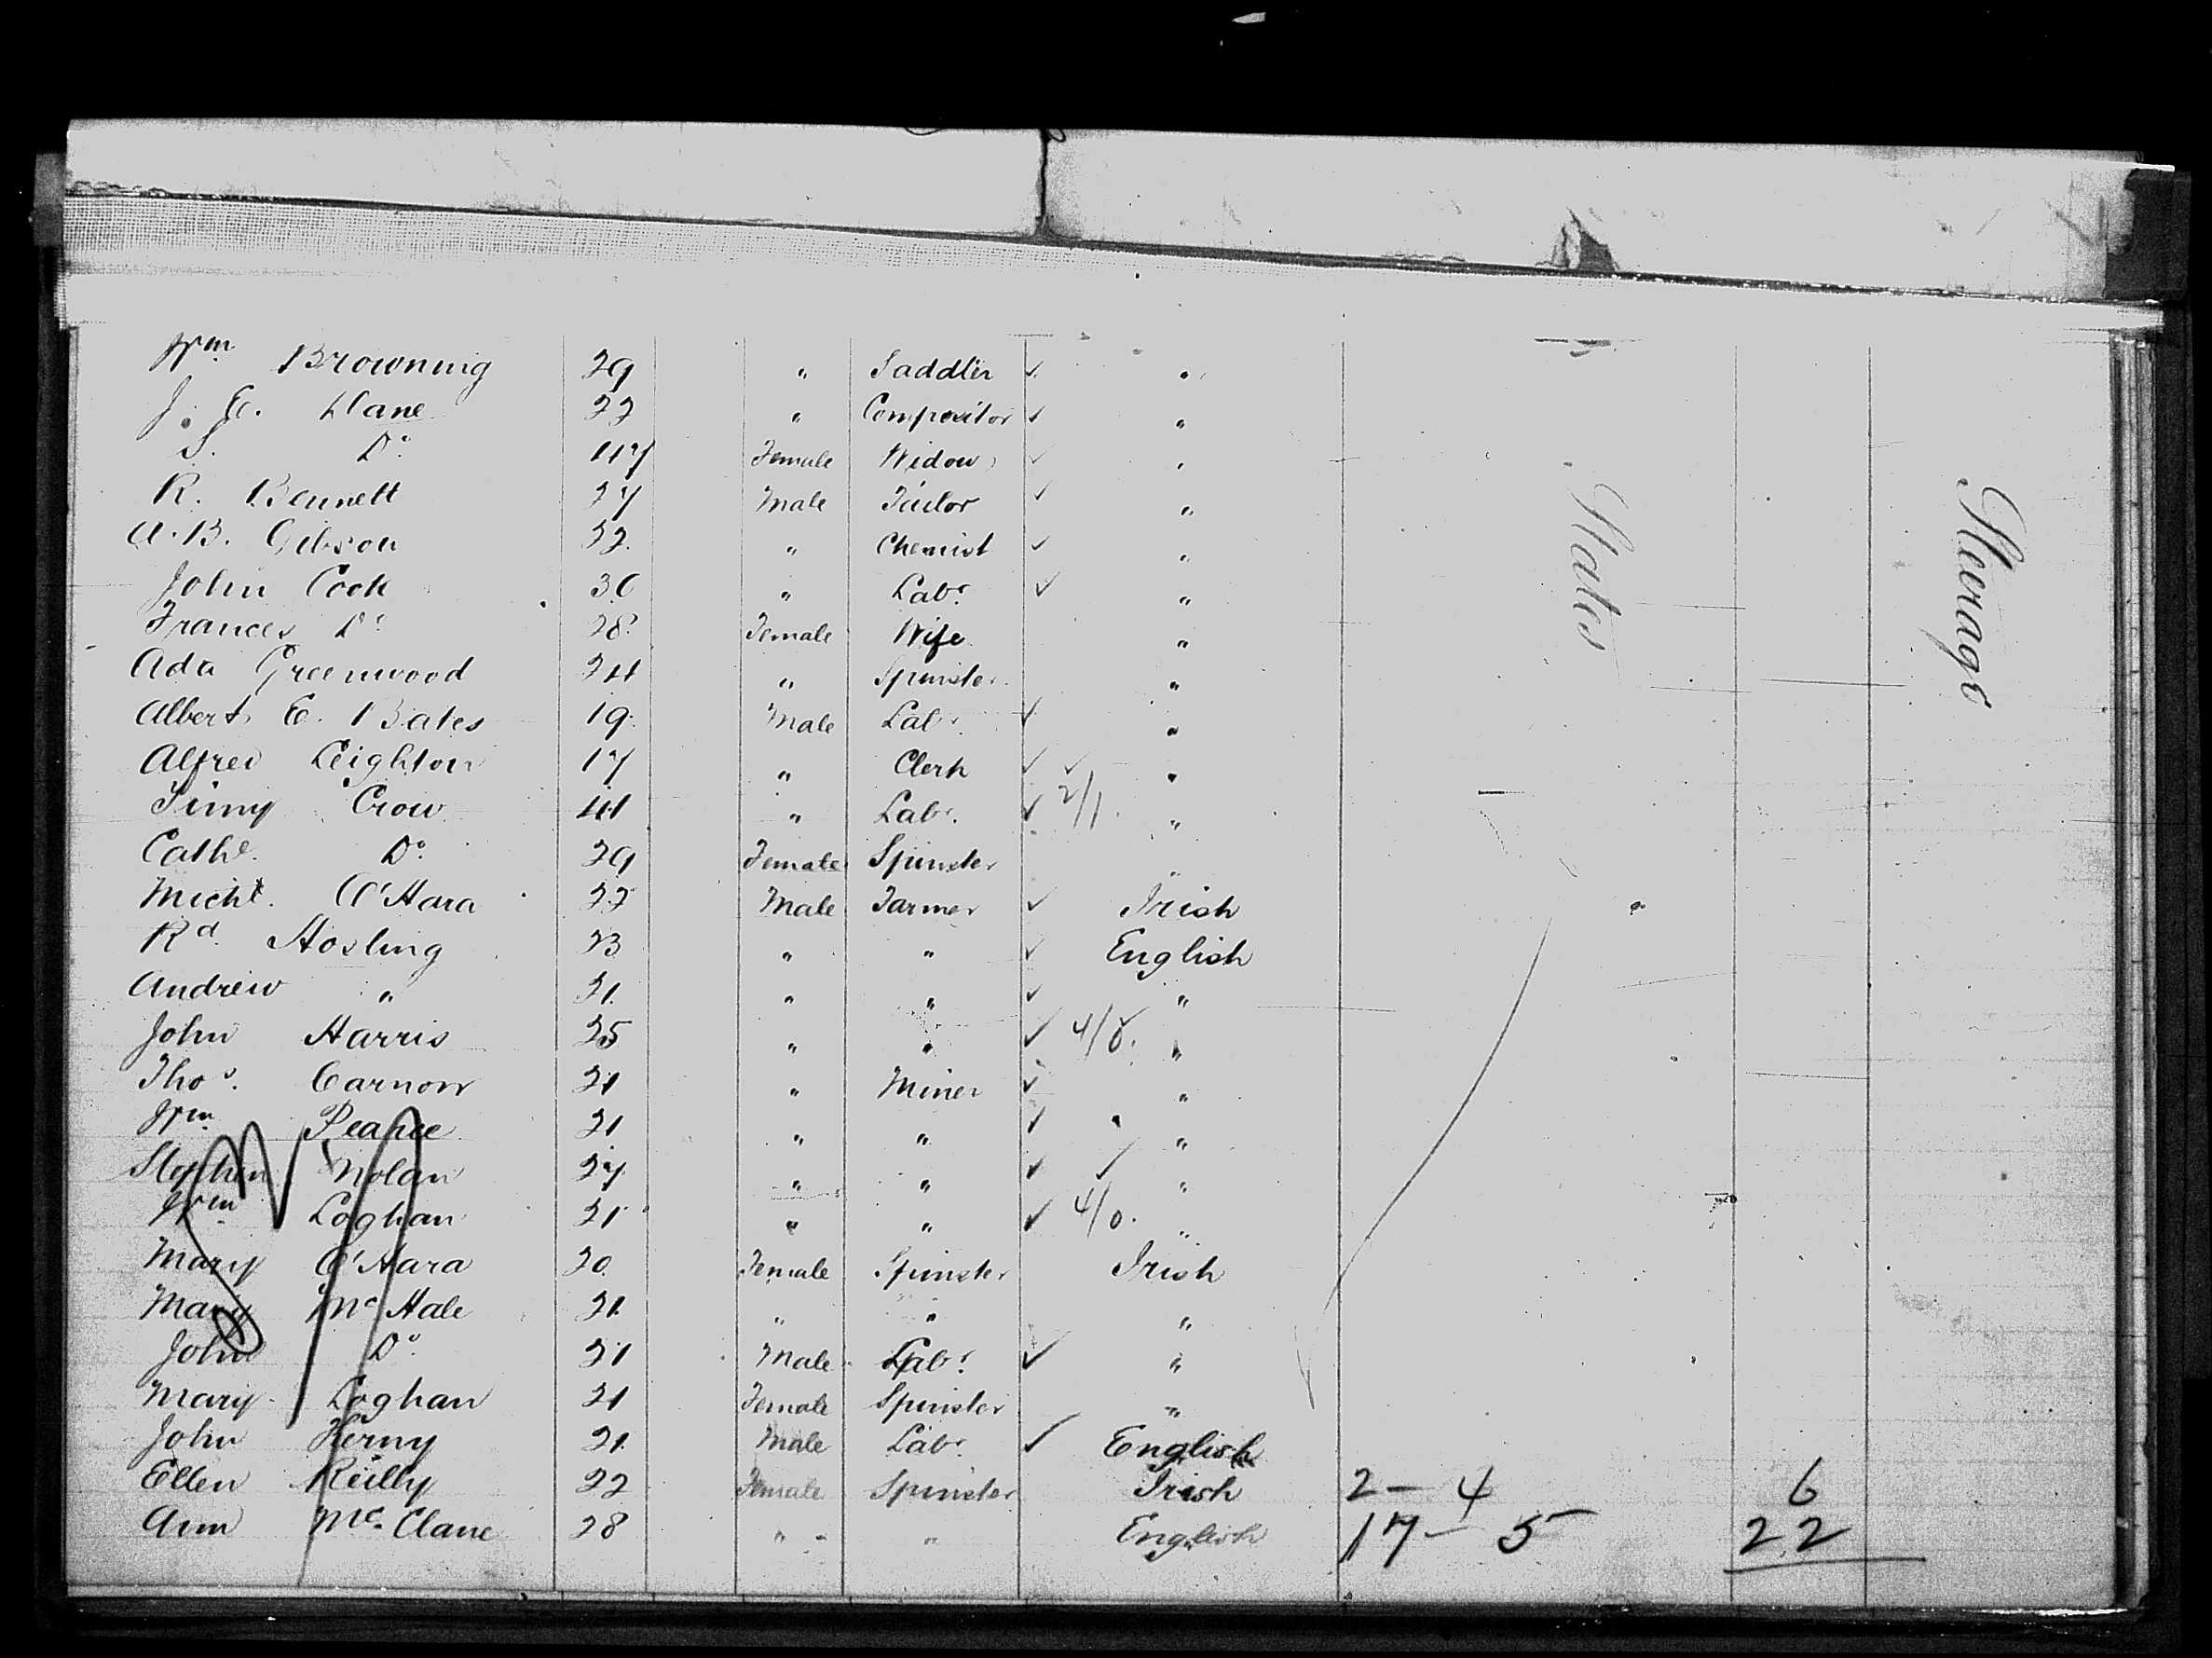 Wm. Browning 29 " Saddler ✓ "
J. E. Dane 22 " Compositor ✓ "
S. Do. 47 Female Widow ✓ "
R. Bennett 27 Male Tailor ✓ "
A. B. Gibson 22 " Chemist ✓ "
John Cook 30 " Labr. ✓ "
Frances Do. 28 Female Wife "
Ada Greenwood 24 " Spinster "
Albert E. Bates 19 Male Labr. ✓ "
Alfred Leighton 17 " Clerk ✓ ✓ "
Crow 41 " Labr. ✓ 2/1 "
Cathe. Do. 29 Female Spinster "
Michl. O'Hara 22 Male Farmer ✓ Irish "
Rd. Hosling 23 " " ✓ English
Andrew " 21 " " ✓ "
John Harris 25 " " ✓ 4/8. "
Thos. Carnow 21 " Miner ✓ "
Wm. Pearce 21 " " ✓ "
Stephen Nolan 27 " " ✓ ✓ "
Wm. Loghan 21 " " ✓ 4/0. "
Mary O'Hara 20 Female Spinster Irish
Mary McHale 21 " " "
John Do. 21 Male Labr. ✓ "
Mary Loghan 21 Female Spinster "
John Kerny 21 Male Labr. ✓ English
Ellen Reilly 22 Female Spinster Irish 2 - 4 6
Ann Mc. Clane 28 " " English 17 - 5 22
States
Steerage